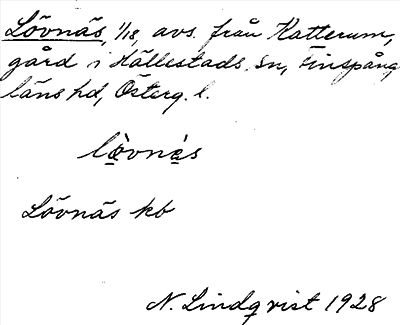 Lövnäs, 1/18, avs. från Katterum,
gård i Hällestads sn, Finspånga
läns hd, Österg. l.
lò̠̠vnàs
Lövnäs kb
N. Lindqvist 1928